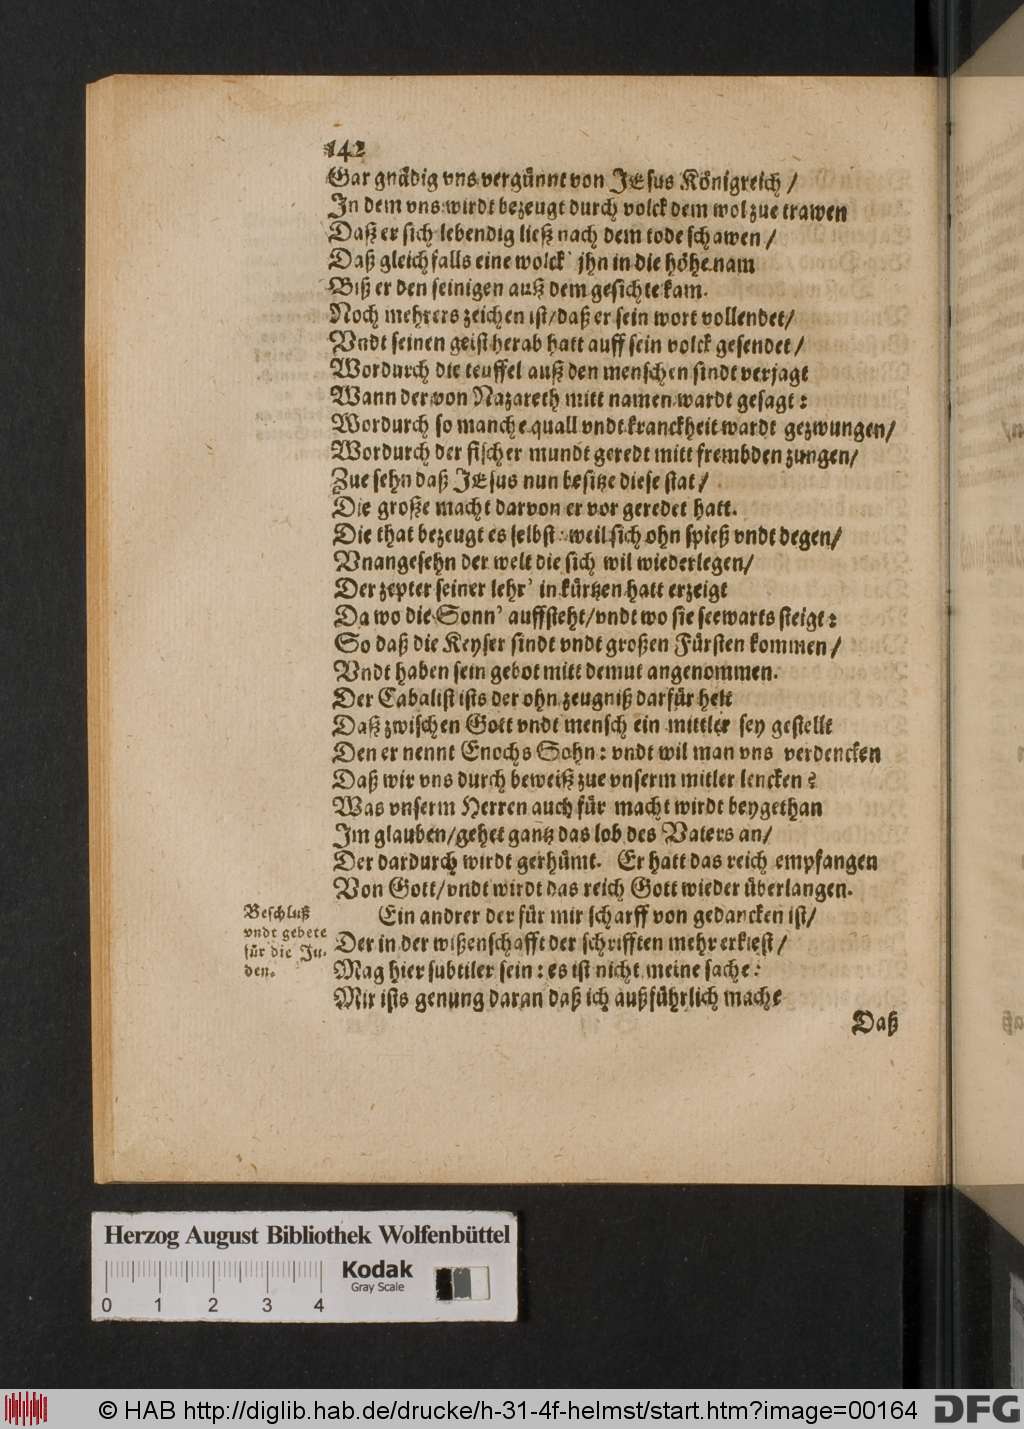 142
Gar gnädig vns vergünnt von JEsus Königreich /
In dem vns wirdt bezeugt durch volck dem wol zue trawen
Daß er sich lebendig ließ nach dem tode schawen /
Daß gleichfalls eine wolck' jhn in die höhe nam
Biß er den seinigen auß dem gesichte kam.
Noch mehrers zeichen ist / daß er sein wort vollendet /
Vndt seinen geist herab hatt auff sein volck gesendet /
Wordurch die teuffel auß den menschen sindt verjagt
Wann der von Nazareth mitt namen wardt gesagt:
Wordurch so manche quall vndt kranckheit wardt gezwungen /
Wordurch der fischer mundt geredt mitt frembden zungen /
Zue sehn daß JEsus nun besitze diese stat /
Die große macht darvon er vor geredet hatt.
Die that bezeugt es selbst: weil sich ohn spieß vndt degen /
Vnangesehn der welt die sich wil wiederlegen /
Der zepter seiner lehr' in kürtzen hatt erzeigt
Da wo die Sonn' auffsteht / vndt wo sie seewarts steigt:
So daß die Keyser sindt vndt großen Fürsten kommen /
Vndt haben sein gebot mitt demut angenommen.
Der Cabalist ists der ohn zeugniß darfür helt
Daß zwischen Gott vndt mensch ein mittler sey gestellt
Den er nennt Enochs Sohn: vndt wil man vns verdencken
Daß wir vns durch beweiß zue vnserm mitler lencken?
Was vnserm Herren auch für macht wirdt beygethan
Im glauben / gehet gantz das lob des Vaters an /
Der dardurch wirdt gerhümt. Er hatt das reich empfangen
Von Gott / vndt wirdt das reich Gott wieder überlangen.
Beschluß
vndt gebete
für die Ju-
den.
Ein andrer der für mir scharff von gedancken ist /
Der in der wißenschafft der schrifften mehr erkiest /
Mag hier subtiler sein: es ist nicht meine sache:
Mir ists genung daran daß ich außführlich mache
Daß
Herzog August Bibliothek Wolfenbüttel
Kodak
Gray Scale
0 1 2 3 4
© HAB http://diglib.hab.de/drucke/h-31-4f-helmst/start.htm?image=00164
DFG